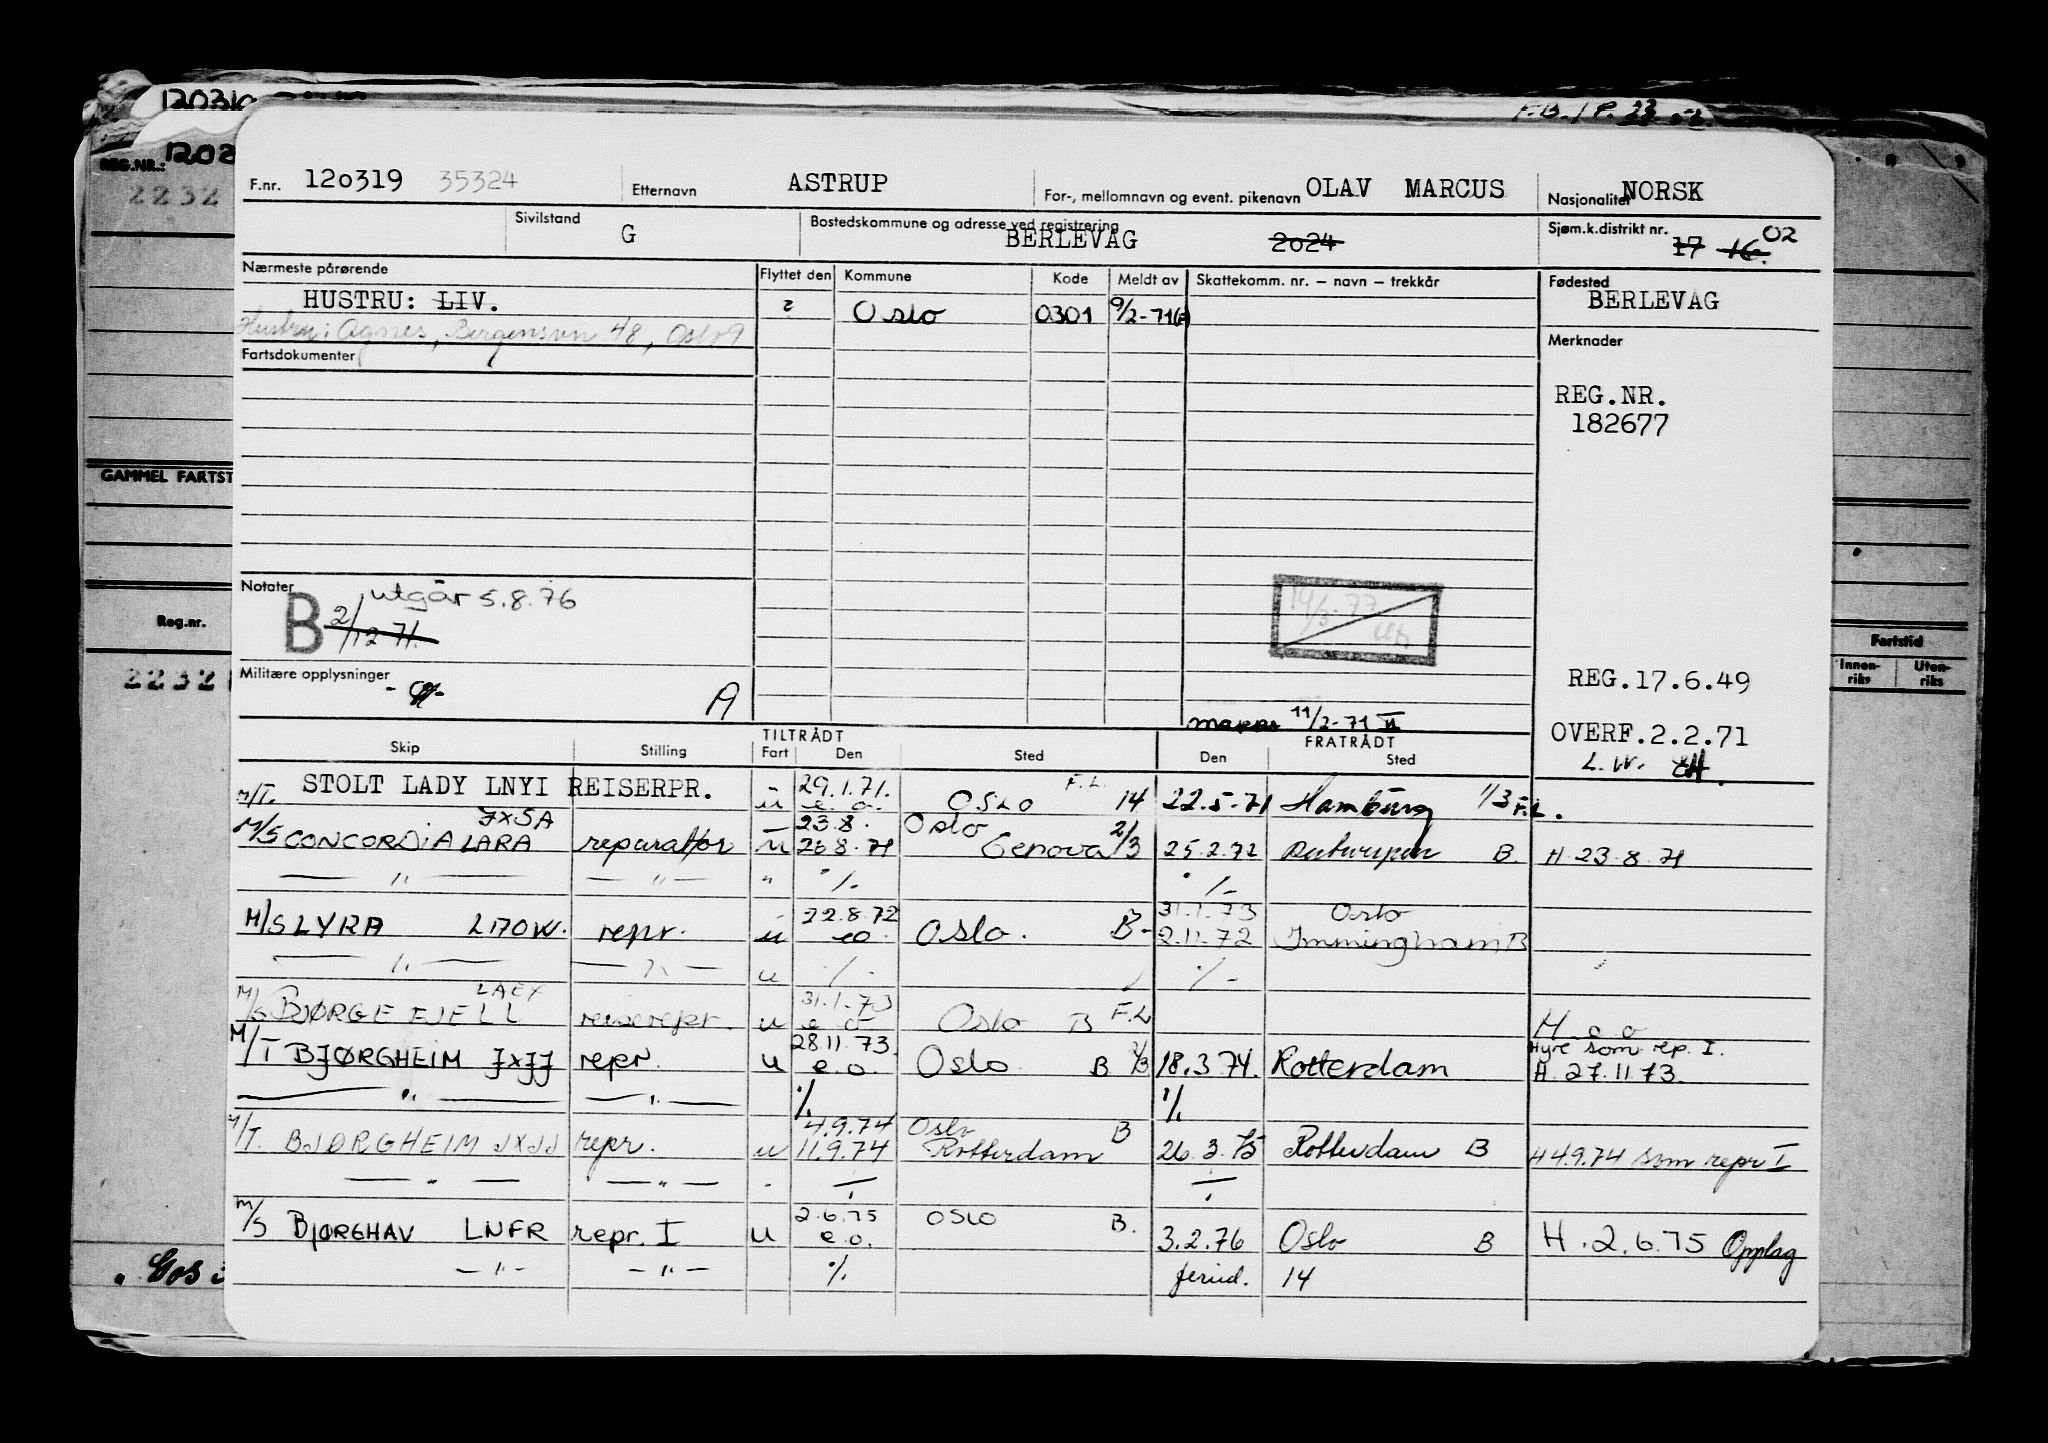 120319
F.B.
REG.NR.: 1202
2232
F.nr. 120319 35324 Etternavn ASTRUP For-, mellomnavn og event. pikenavn OLAV MARCUS Nasjonalitet NORSK
Sivilstand G Bostedskommune og adresse ved registrering BERLEVÅG 2024 Sjøm.k.distrikt nr. 17 16. 02
Nærmeste pårørende Flyttet den Kommune Kode Meldt av Skattekomm. nr. – navn – trekkår Fødested
HUSTRU: LIV. ? Oslo 0301 9/2-71 BERLEVÅG
Hustru: Agnes, Bergensvn 48, Oslo 9
Fartsdokumenter Merknader
REG.NR.
182677
GAMMEL FARTST
Notater utgår 5.8.76
B 2/12 71.
14/3-77
Reg.nr. Fartstid
Innen-riks Uten-riks
2232
Militære opplysninger A REG.17.6.49
11/2-71
OVERF.2.2.71
L.W.
Skip Stilling TILTRÅDT Fart Den Sted FRATRÅDT Den Sted
M/T. STOLT LADY LNYI REISERPR. u 29.1.71. e.o. Oslo F.L. 14 22.5.71 Hamburg 1/3 F.L.
M/S CONCORDIA LARA JXSA reparatør u 23.8. 26.8.71 Oslo Genova 2/3 25.2.72 Antwerpen B. H. 23.8.71
— " — — " — " ·/. ·/.
M/S LYRA LAOW. repr. u 22.8.72 e.o. Oslo. B- 31.1.73 2.11.72 Oslo Immingham B
— " — — " — u ·/. ·/.
M/S BJØRGEFJELL LAEY reiserepr. u 31.1.73 e.o. Oslo B F.L. H e o
M/T BJØRGHEIM JXJJ repr. u 28.11.73. e.o. Oslo B 2/3 18.3.74. Rotterdam Hyre som rep. I. H. 27.11.73.
— " — — " — ·/. ·/.
M/T. BJØRGHEIM JXJJ repr. u 4.9.74 11.9.74 Oslo Rotterdam B 26.3.75 Rotterdam B H 4.9.74 som repr I
— " — — " — ·/. ·/.
M/S BJØRGHAV LNFR repr. I u 2.6.75 e.o. OSLO B. 3.2.76 Oslo B H. 2.6.75 Opplag
— " — — " — ·/. feried. 14